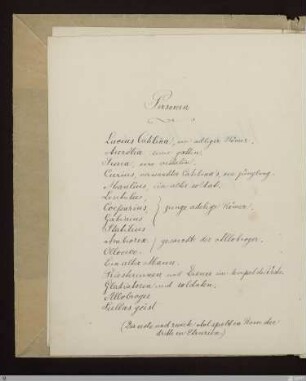 Personen
Lucius Catilina, ein adliger Römer.
Aurelia, seine gattin.
Furia, eine vestalin.
Curius, verwandter Catilina's, ein jüngling.
Manlius, ein alter soldat.
Lentulus,
Coeparius, } junge adelige Römer.
Gabinius
Statilius
Ambiorix } gesandte der Allobroger.
Ollovico
Ein alter Mann.
Priesterinnen und Diener im
Gladiatoren und soldaten.
Allobroger
Sullas geist
(Das erste und zweite akt spielt in Rom der
dritte in Etrurien.)